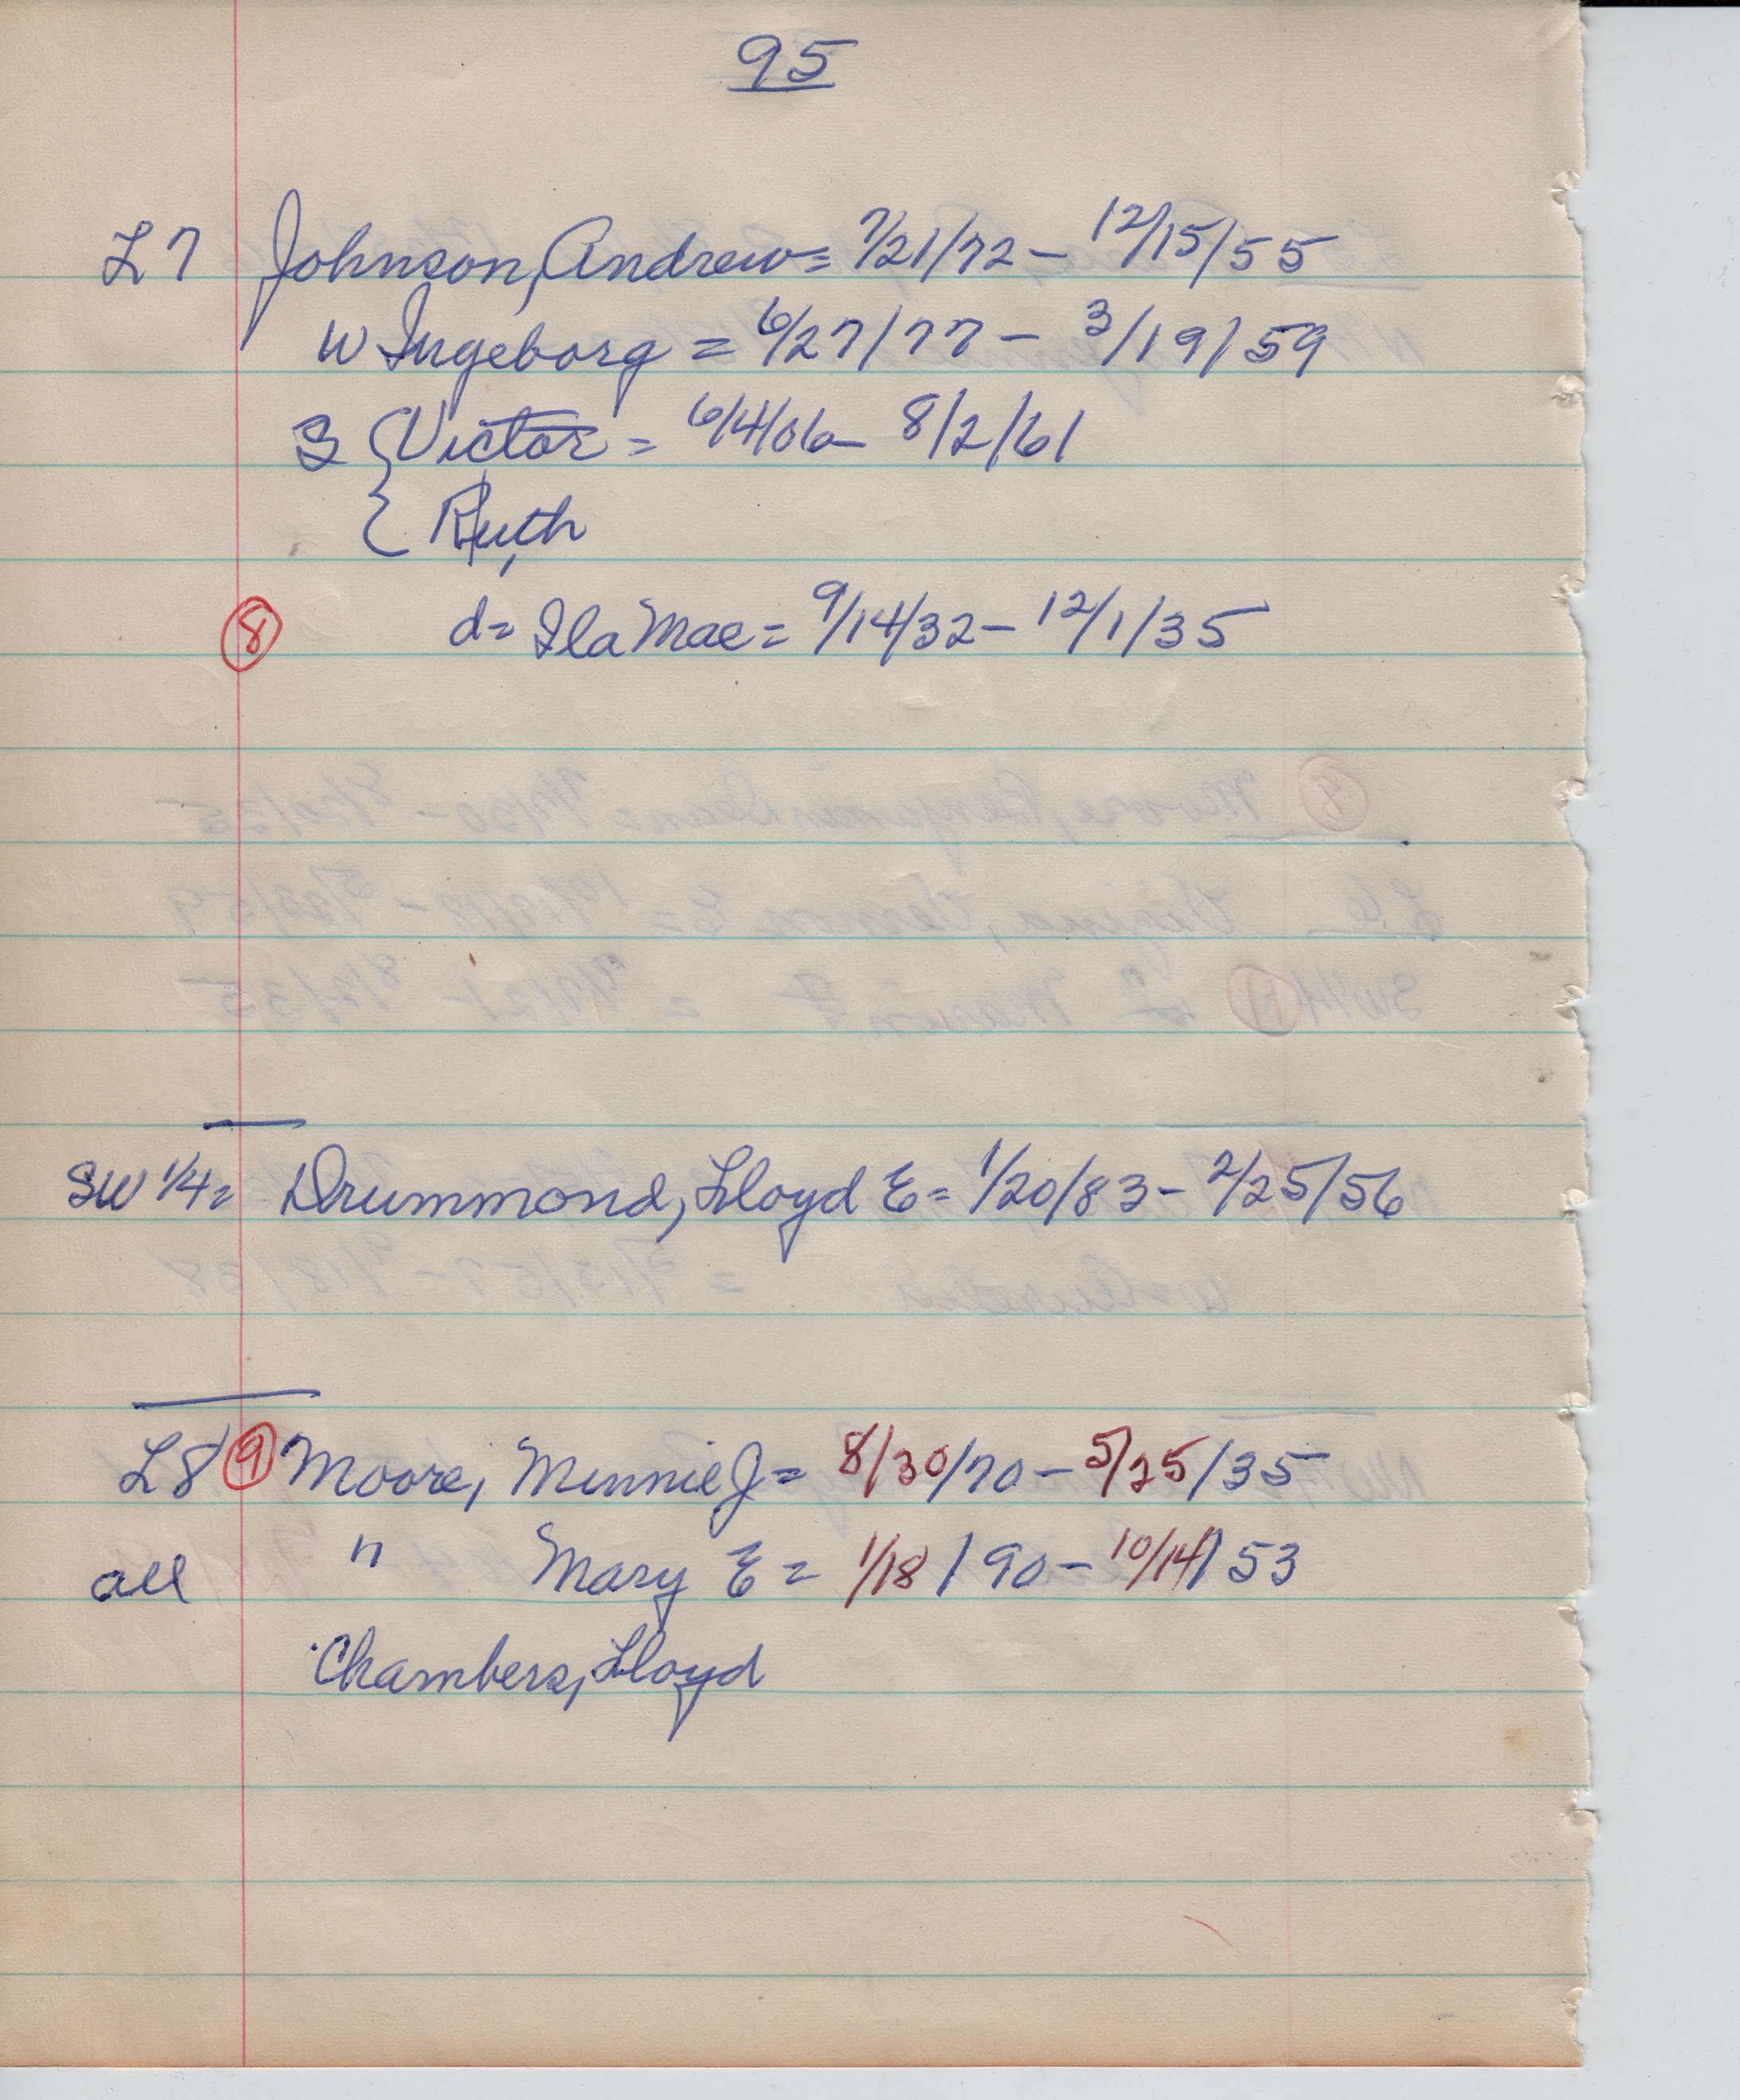 95
L7 Johnson, Andrew = 7/21/72 - 12/15/55
W Ingeborg = 6/27/77 - 3/19/59
S { Victor = 6/4/06 - 8/2/61
{ Ruth
8 d = Ila Mae = 9/14/32 - 12/1/35
SW 1/4 = Drummond, Lloyd E = 1/20/83 - 2/25/56
L8 9 Moore, Minnie J = 8/30/70 - 5/25/35
all " Mary E = 1/18/90 - 10/14/53
Chambers, Lloyd